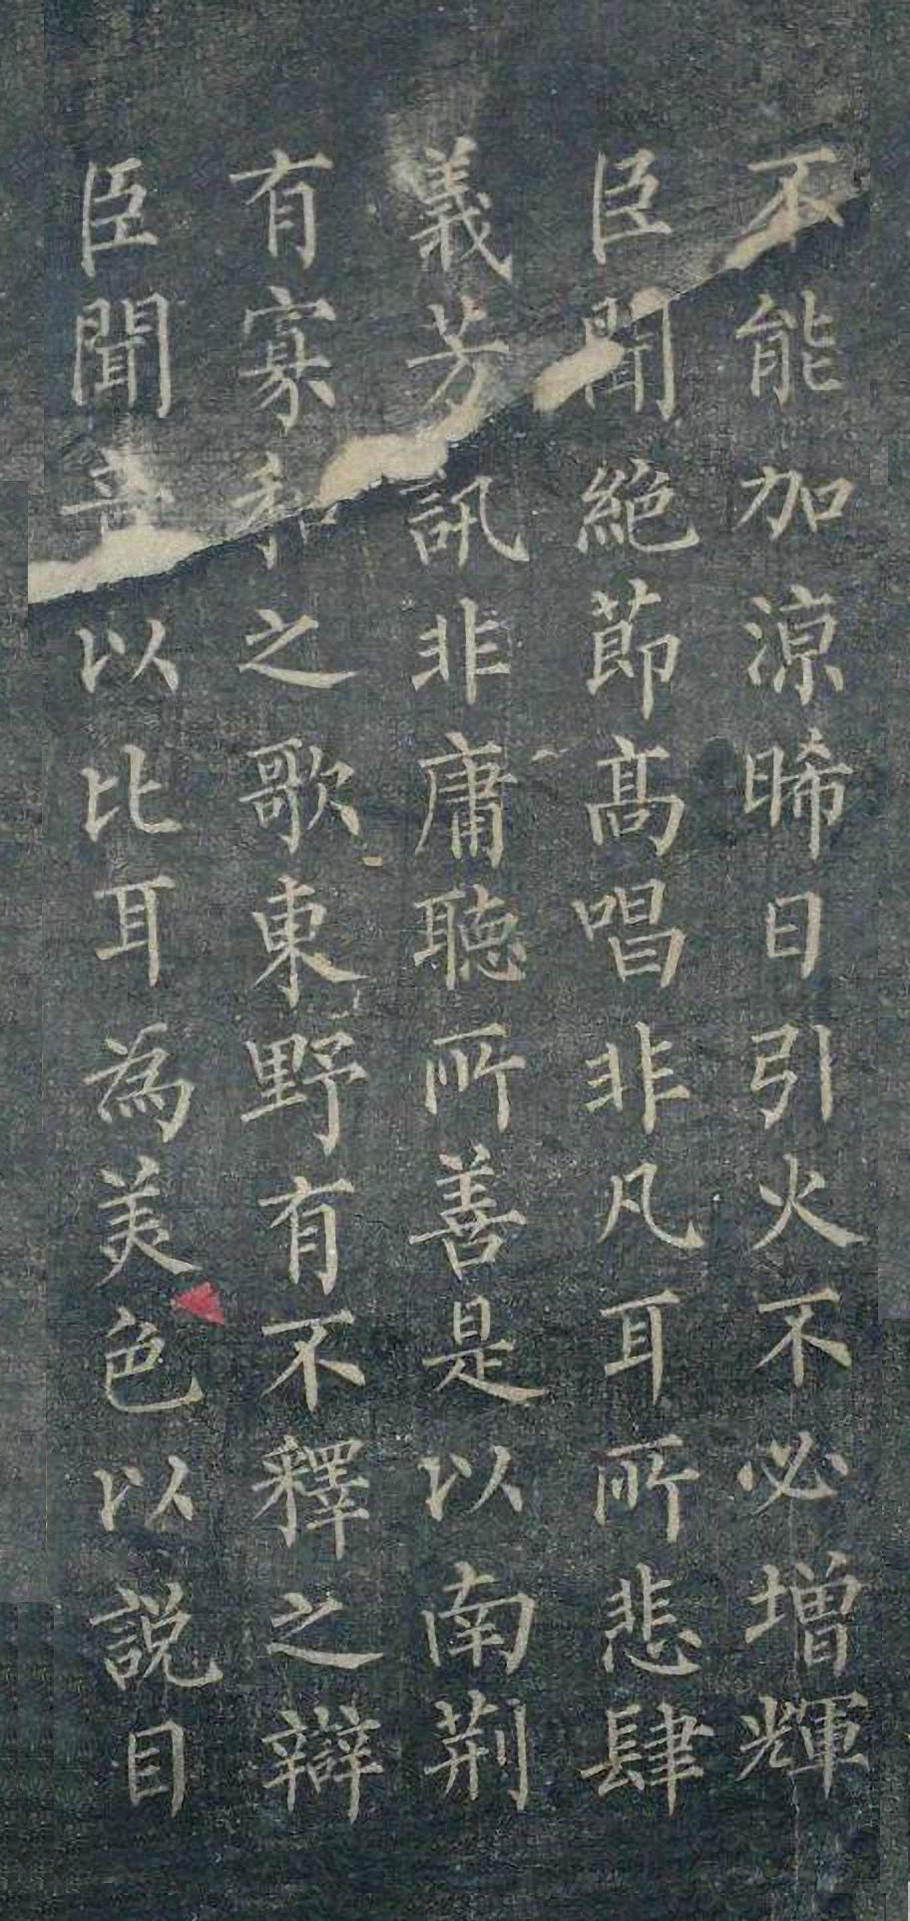 不能加涼晞日引火不必增輝
臣聞絶莭髙唱非凡耳所悲肆
義芳訊非庸聴所善是以南荊
有寡和之歌東野有不釋之辯
臣聞音以比耳為美色以説目